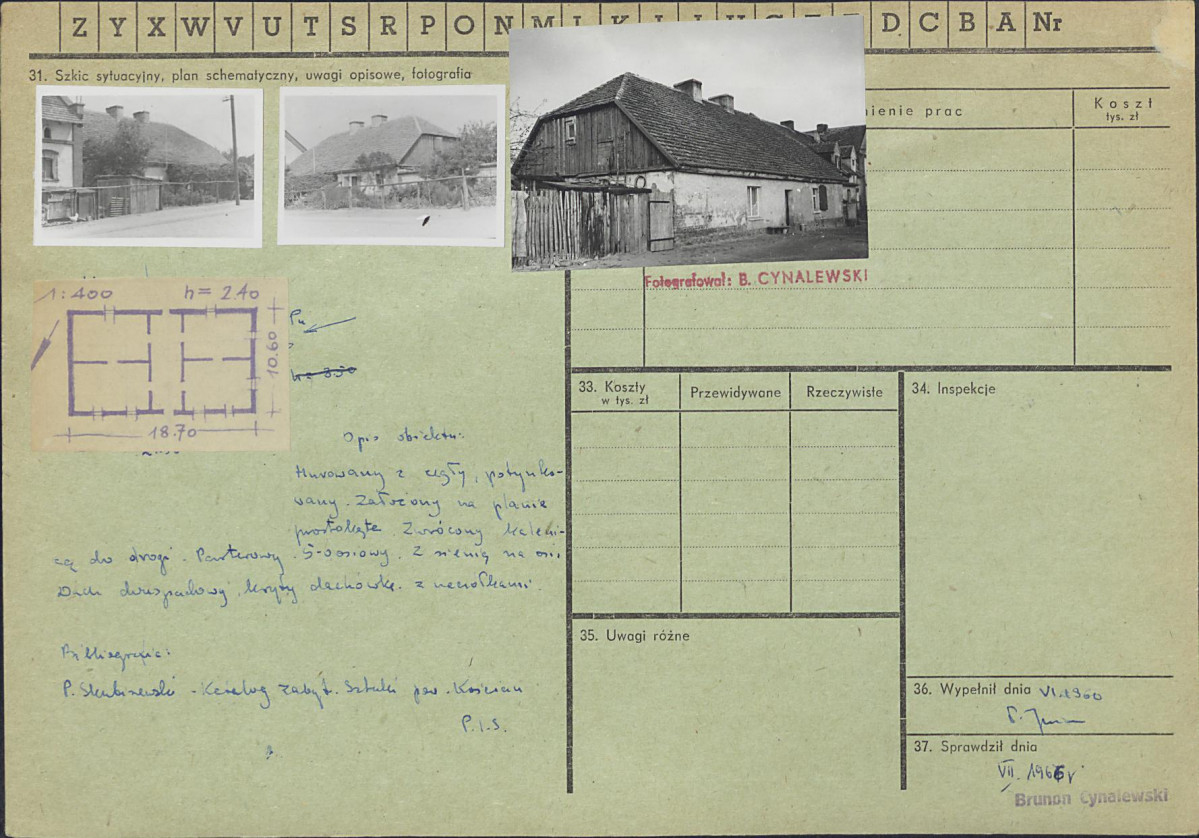 Z Y X W V U T S R P O N M D C B A Nr
31. Szkic sytuacyjny, plan schematyczny, uwagi opisowe, fotografia
nienie prac
Koszt
tys. zł
Fotografował: B. CYNALEWSKI
1:400 h= 2.40
10.60
18.70
Opis obiektu:
Murowany z cegły, potynko-
wany. Założony na planie
prostokąta. Zwrócony kaleni-
cą do drogi. Parterowy. 5-osiowy. Z sienią na osi.
Dach dwuspadowy, kryty dachówką. z naczółkami.
Bibliografia:
P. Skubiszewski - Katalog zabyt. Sztuki pow. Kościan
P.I.S.
33. Koszty
w tys. zł
Przewidywane
Rzeczywiste
34. Inspekcje
35. Uwagi różne
36. Wypełnił dnia VI.1960
37. Sprawdził dnia
VII. 1966 r
Brunon Cynalewski